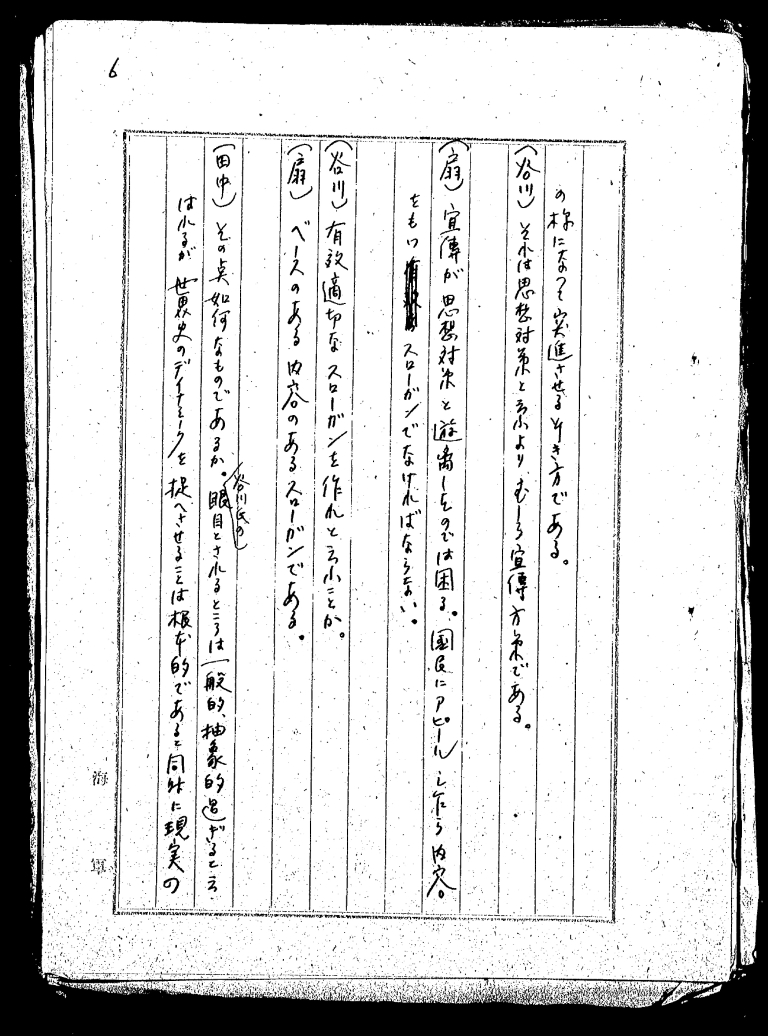 6
の様になつて突進させる行き方である。
(谷川) それは思想対策と云ふよりむしろ宣傳方策である。
(扇) 宣傳が思想対策と遊離したのでは困る。国民にアピール 内容。
をもつ スローガンでなければならない。
(谷川) 有效適切なスローガンを作れと云ふことか。
(扇) ベースのある内容のあるスローガンである。
谷川氏の
(田中) その点如何なものであるか。眼目とされるところは一般的、抽象的過ぎると云
はれるが世界史のデイナミークを捉へさせることは根本的であると同時に現実の
海軍